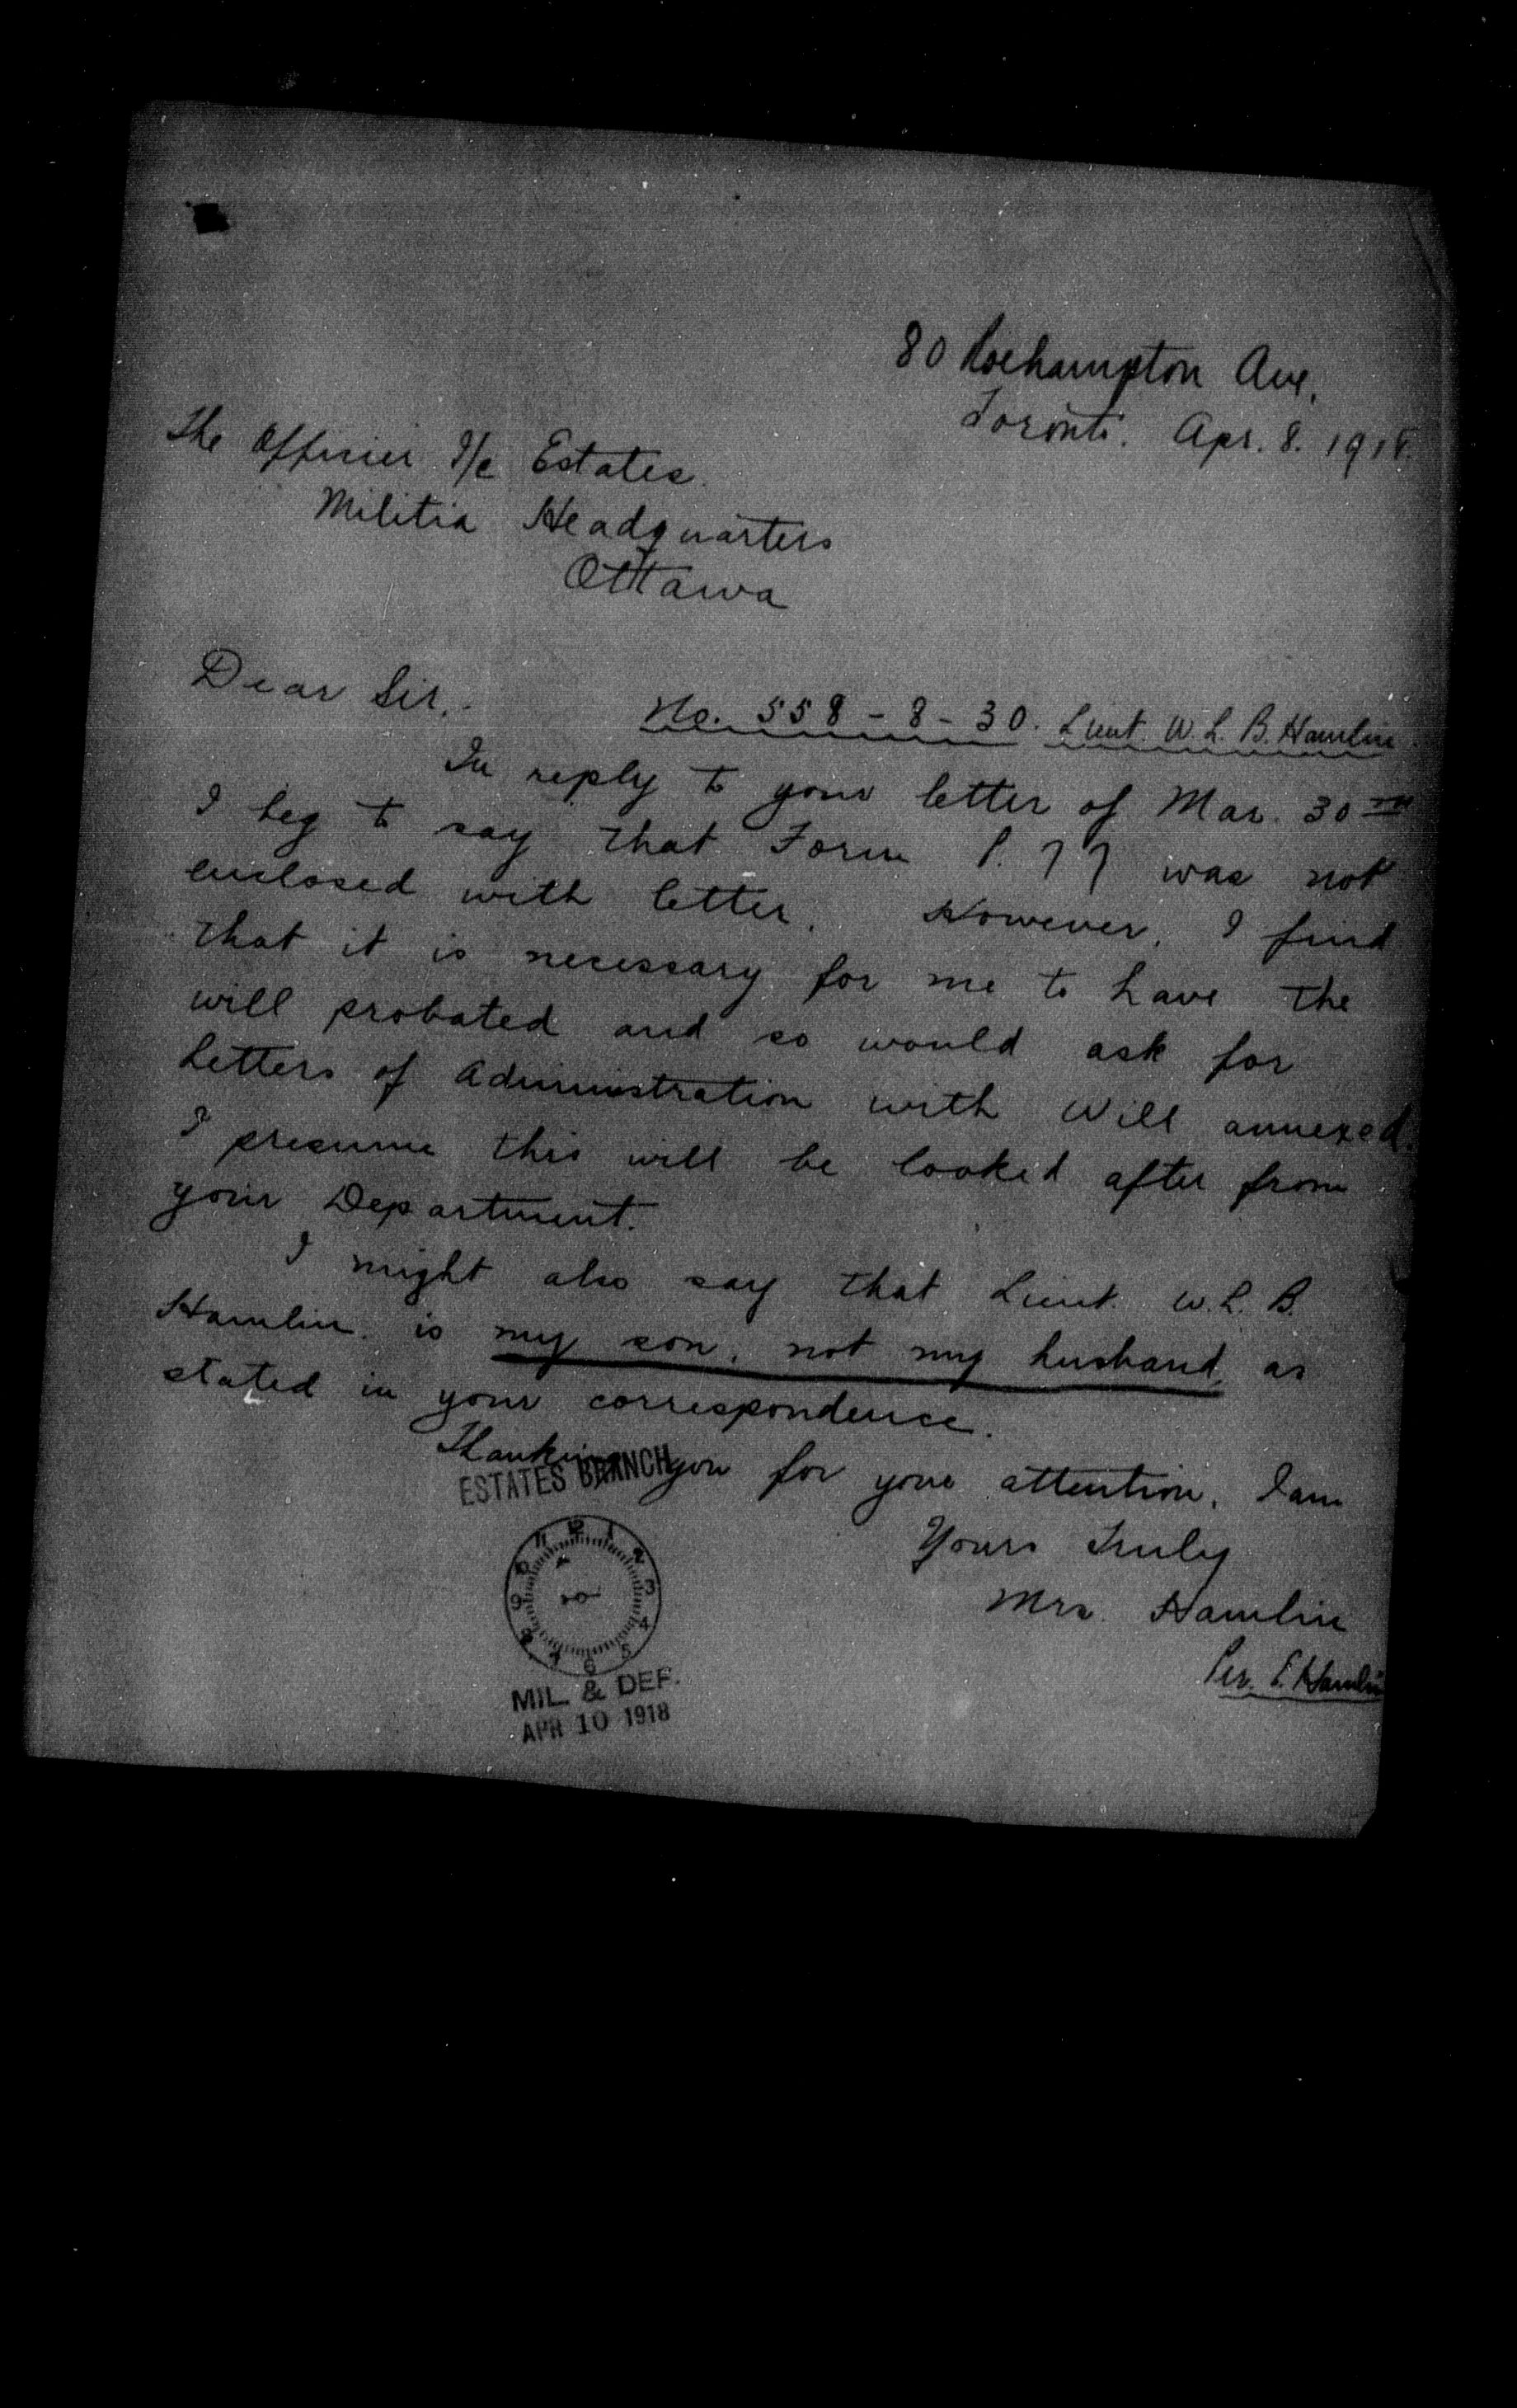 80 Roehampton Ave,
Toronto. Apr. 8. 1918.
The Officer I/c Estates.
Militia Headquarters
Ottawa
Dear Sir,
No. 558-8-30. Lieut. W. L. B. Hamlin.
In reply to your letter of Mar. 30th
I beg to say that Form P. 77 was not
enclosed with letter. However, I find
that it is necessary for me to have the
will probated and so would ask for
Letters of Administration with Will annexed.
I presume this will be looked after from
your Department.
I might also say that Lieut. W. L. B.
Hamlin. is my son, not my husband, as
stated in your correspondence.
Thanking you for your attention, I am
ESTATES BRANCH
Yours Truly
Mrs. Hamlin
Per. E. Hamlin
12 1 2 3 4 5 6 7 8 9 10 11
MIL. & DEF.
APR 10 1918